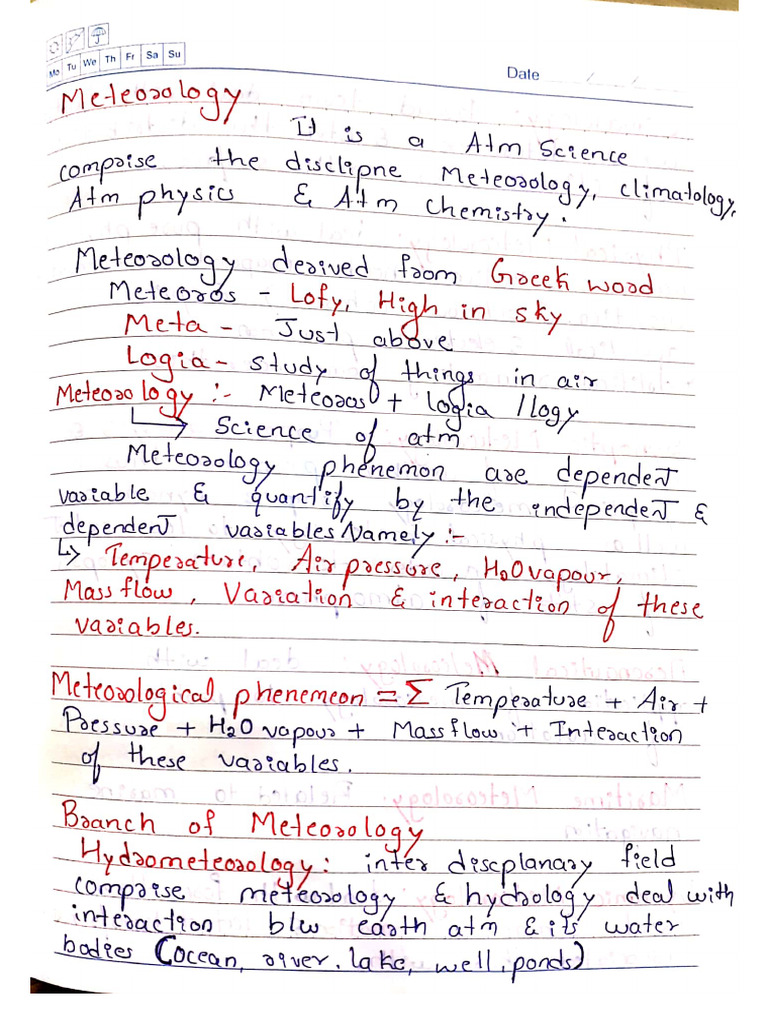 Mo Tu We Th Fr Sa Su
Date / /
Meteorology
It is a Atm Science
comprise the disclipne Meteorology, climatology,
Atm physics & Atm chemistry.
Meteorology derived from Greek word
Meteoros - Lofy, High in sky
Meta - Just above
Logia - study of things in air
Meteorology :- Meteoros + logia / logy
↳ Science of atm
Meteorology phenemon are dependent
variable & quantify by the independent &
dependent variables Namely :-
↳ Temperature, Air pressure, H2O vapour,
Mass flow, Variation & interaction of these
variables.
Meteorological phenemeon = Σ Temperature + Air +
Pressure + H2O vapour + Mass flow + Interaction
of these variables.
Branch of Meteorology
Hydrometeorology: inter discplanary field
comprise meteorology & hydrology deal with
interaction b/w earth atm & its water
bodies (ocean, river, lake, well, ponds)